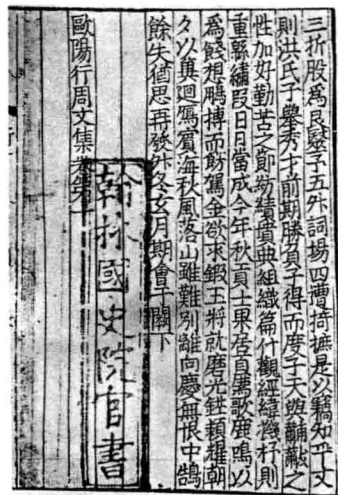 三折股爲良醫子五升詞場四遭掎摭是以竊知乎文
則洪氏子舉秀才前期勝負子得而度子天與黼黻之
性加好勤苦之節紡績墳典組織篇什觀經緯機杼則
重縣繡段日月當成今年秋貢士果居首薦歌鹿鳴以
爲餞想鵬搏而飭駕金欲求鍛玉將就磨光鋩穎耀朝
夕以冀迴鴈賓海秋風落山雖難別離向慶無恨中鵠
餘矢猶思再發升冬玄月期會乎關下
歐陽行周文集卷第十
翰林國史院官書